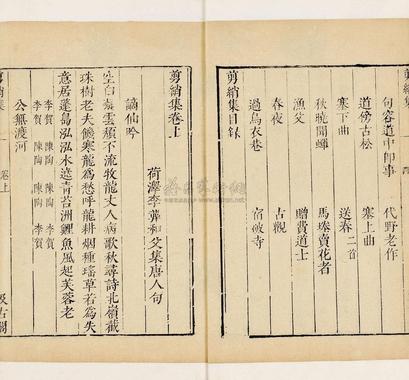 剪綃集
句容道中即事 代野老作
道傍古松 塞上曲
塞下曲 送春二首
秋曉聞蟬 馬塍賣花者
漁父 贈貴道士
春夜 古觀
過烏衣巷 宿破寺
剪綃集目録
剪綃集卷上
荷澤李龏和父集唐人句
謫仙吟
空白凝雲頹不流牧龍丈人病歌秋尋詩北嶺截
珠樹老夫饑寒龍為愁呼龍耕烟種瑤草若為失
意居蓬島泓泓水遶青苔洲鯉魚風起芙蓉老
李賀 陳陶 陳陶 李賀
李賀 陳陶 李賀
公無渡河
剪綃集 卷上 汲古閣